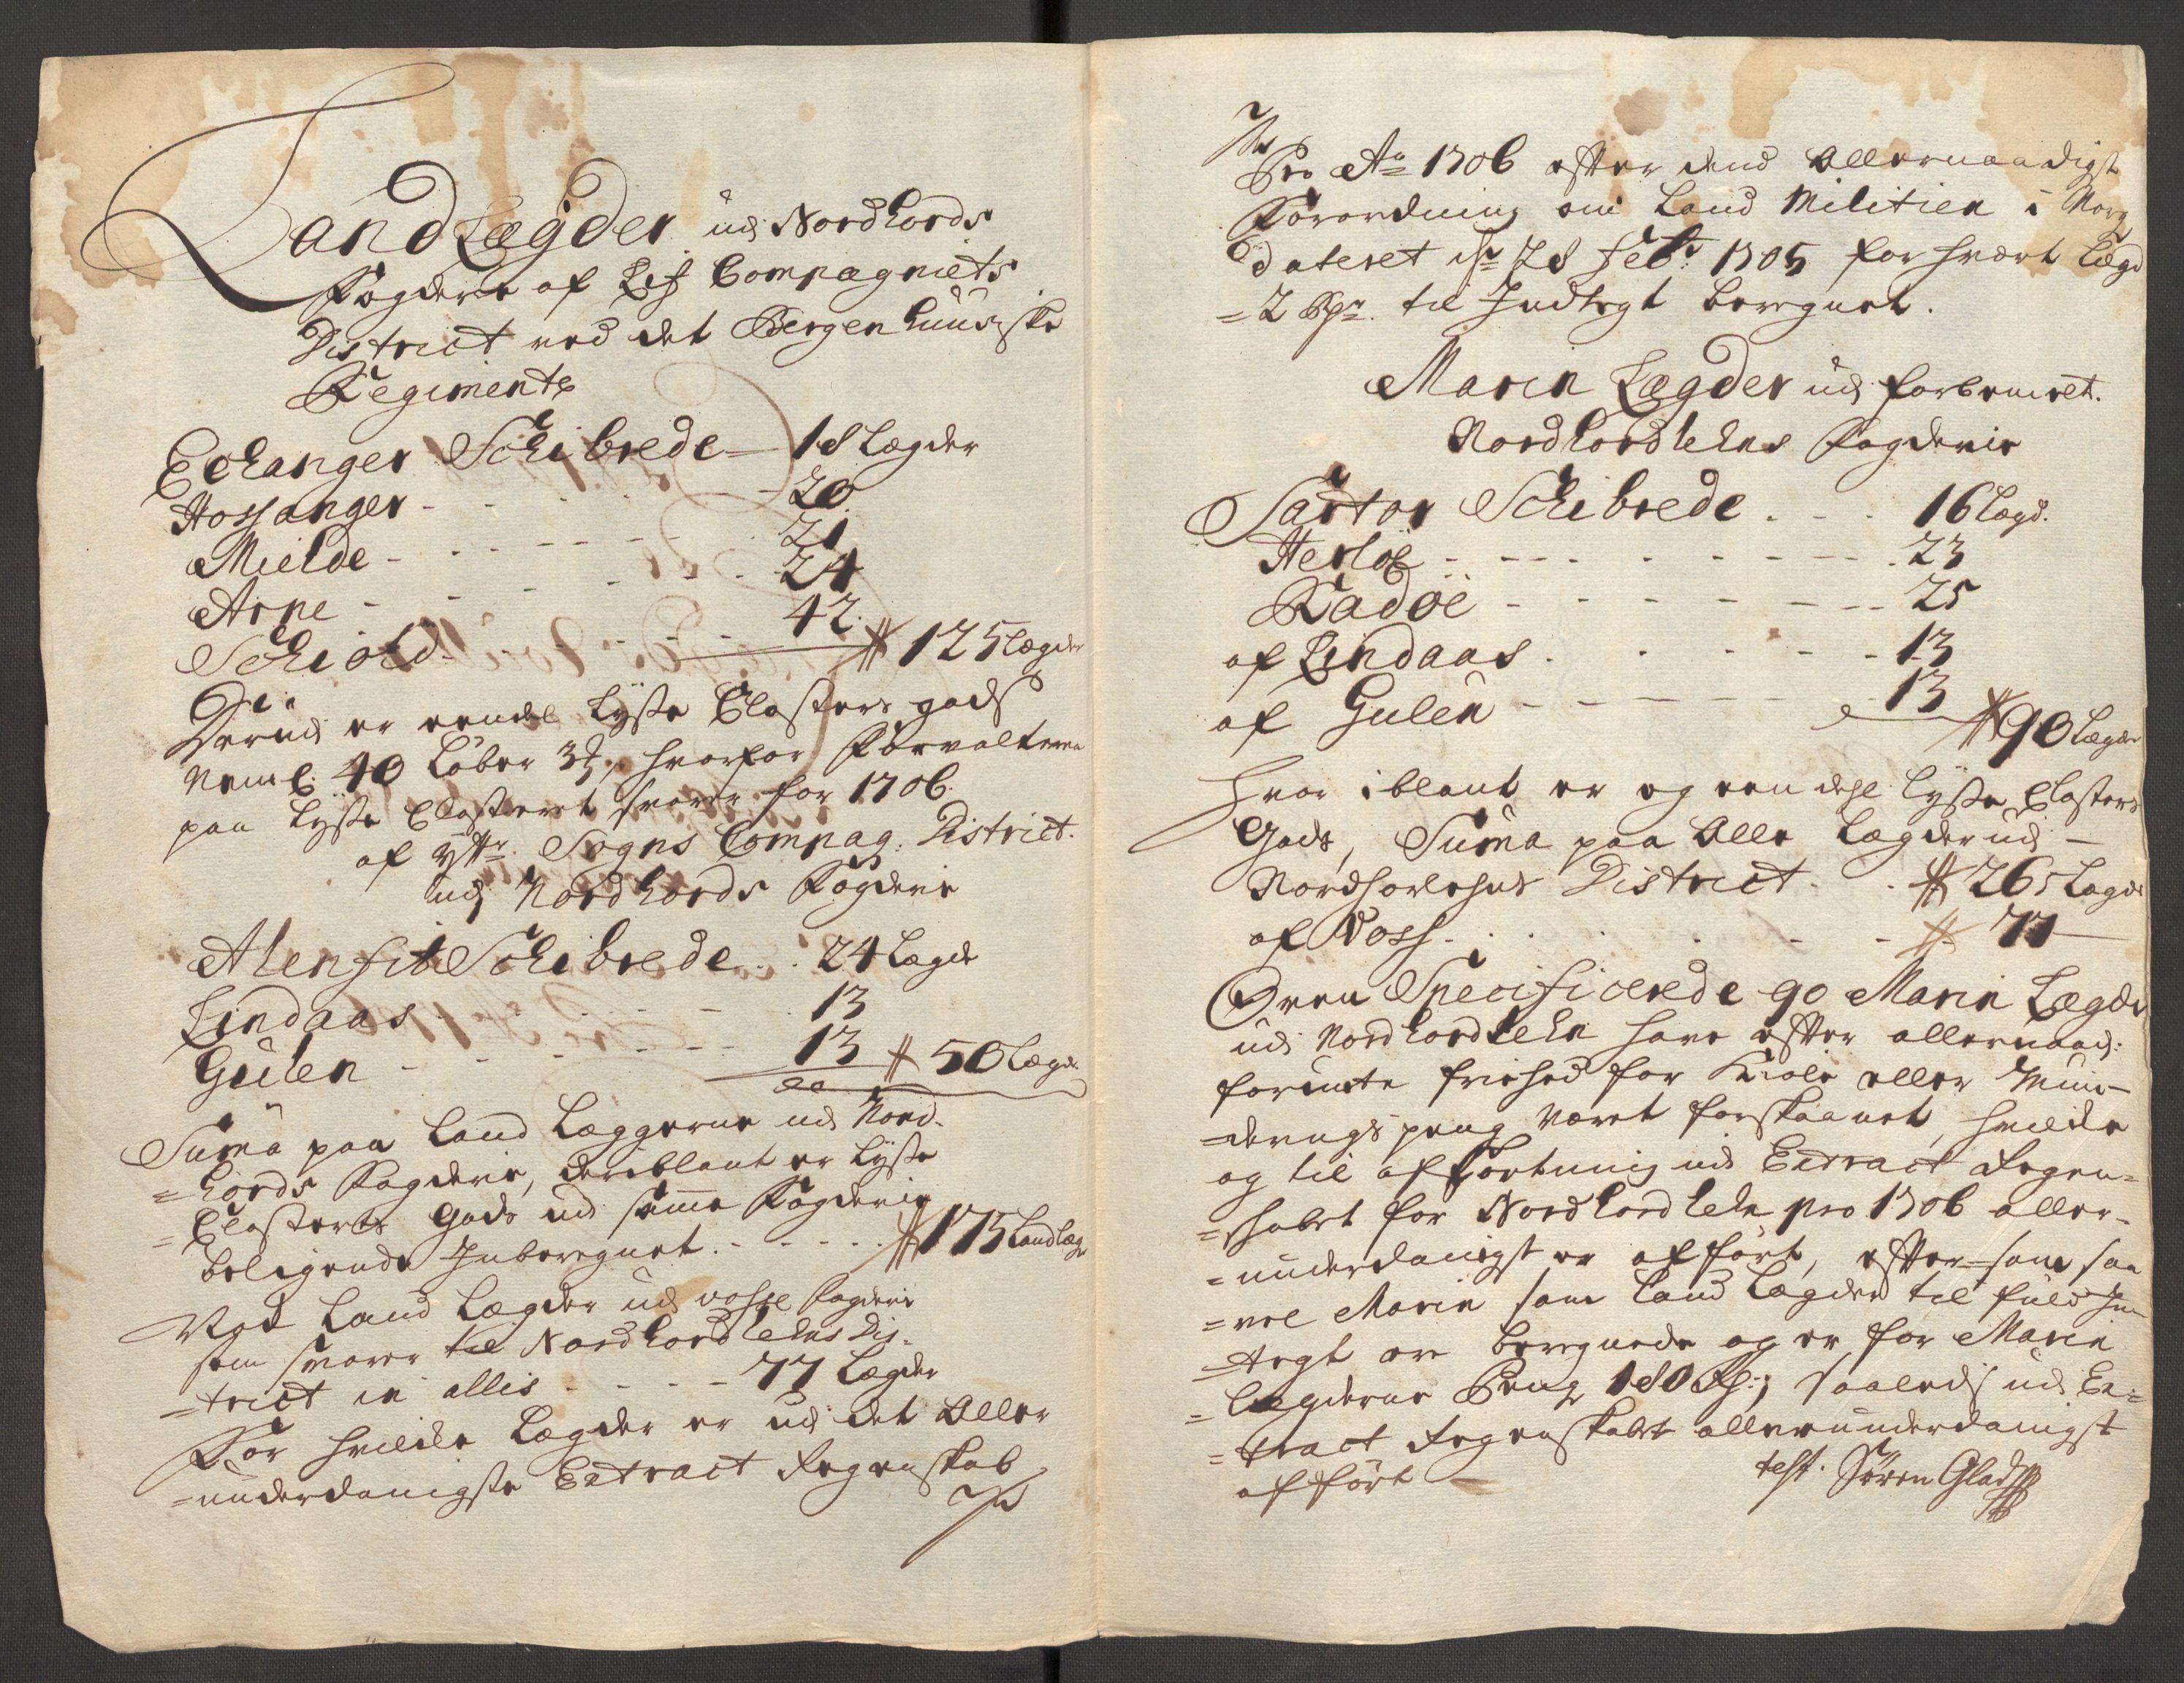 Land Lægder udj Nordhords
Fogderie af Lif Compagniets
District ved det Bergenhuusiske
Regimente
Echanger Schibrede — 18 Lægder
Hossanger - - - 20
Mielde - - - 21
Arne - - - 24
Schiold - - - 42. # 125 Lægder
Herudj er eendel Lyße Closters gods
Neml: 40 Løber hvorfor Forvalteren
paa Lyße Closteret svarer for 1706.
af ytt: Sogns Compag: District.
udj Nordhords Fogderie
Alensfit Schibrede . . 24 Lægder
Lindaas - - - 13
Gulen - - - 13 # 50 Lægd:
Suma paa Land Læggerne udj Nord-
=hords Fogderie, deriblant er Lyße
=Closters Gods udj samme Fogderie
beligende Inberegnet. - - - # 175 Land læg
Noch Land Lægder udj Vosse Fogderie
som svarer til Nordhordlehns Dis-
=trict in allis - - - 77 Lægder
For hvilcke Lægder er udj det Aller
=underdanigste Extract Regenskab
Pro Ao 1706 effter dend Allernaadigste
Forordning om Land Militien i Norg
dateret d: 28 Feb: 1705 for hvert Lægd
=2 Rdr. til Indtegt beregnet.
Marin Lægder udj forbemelt.
Nordhordlehns Fogderie
Sartor Schibrede . . . 16 Lægd.
Herløe - - - 23
Radøe - - - 25
af Lindaas . . . 13
af Gulen - - - 13 # 90 Lægder
Hvor iblant er og een deel Lyße Closters
Gods, Suma paa Alle Lægder udj —
Nordhorlehns District . . # 265 Lægder
af Voss . . . # 77 —
Oven Specificerede 90 Marin Lægder
udj Nordhordlehn have effter allernaad:
forundte friehed for Kiole eller Mun-
=derings peng været forskaanet, hvilcke
og til affkortning udj Extract Regen-
=skabet for Nordhordlehn pro 1706 aller-
=underdanigst er afført, efftersom saa
=vel Marin som Land Lægder til fuld In
=tegt ere beregnede og er for Marin
=Lægderne Peng 180 Rd:, saaledes udj Ex-
=tract Regenskabet allerunderdanigst
afført —
test. Søren Glad